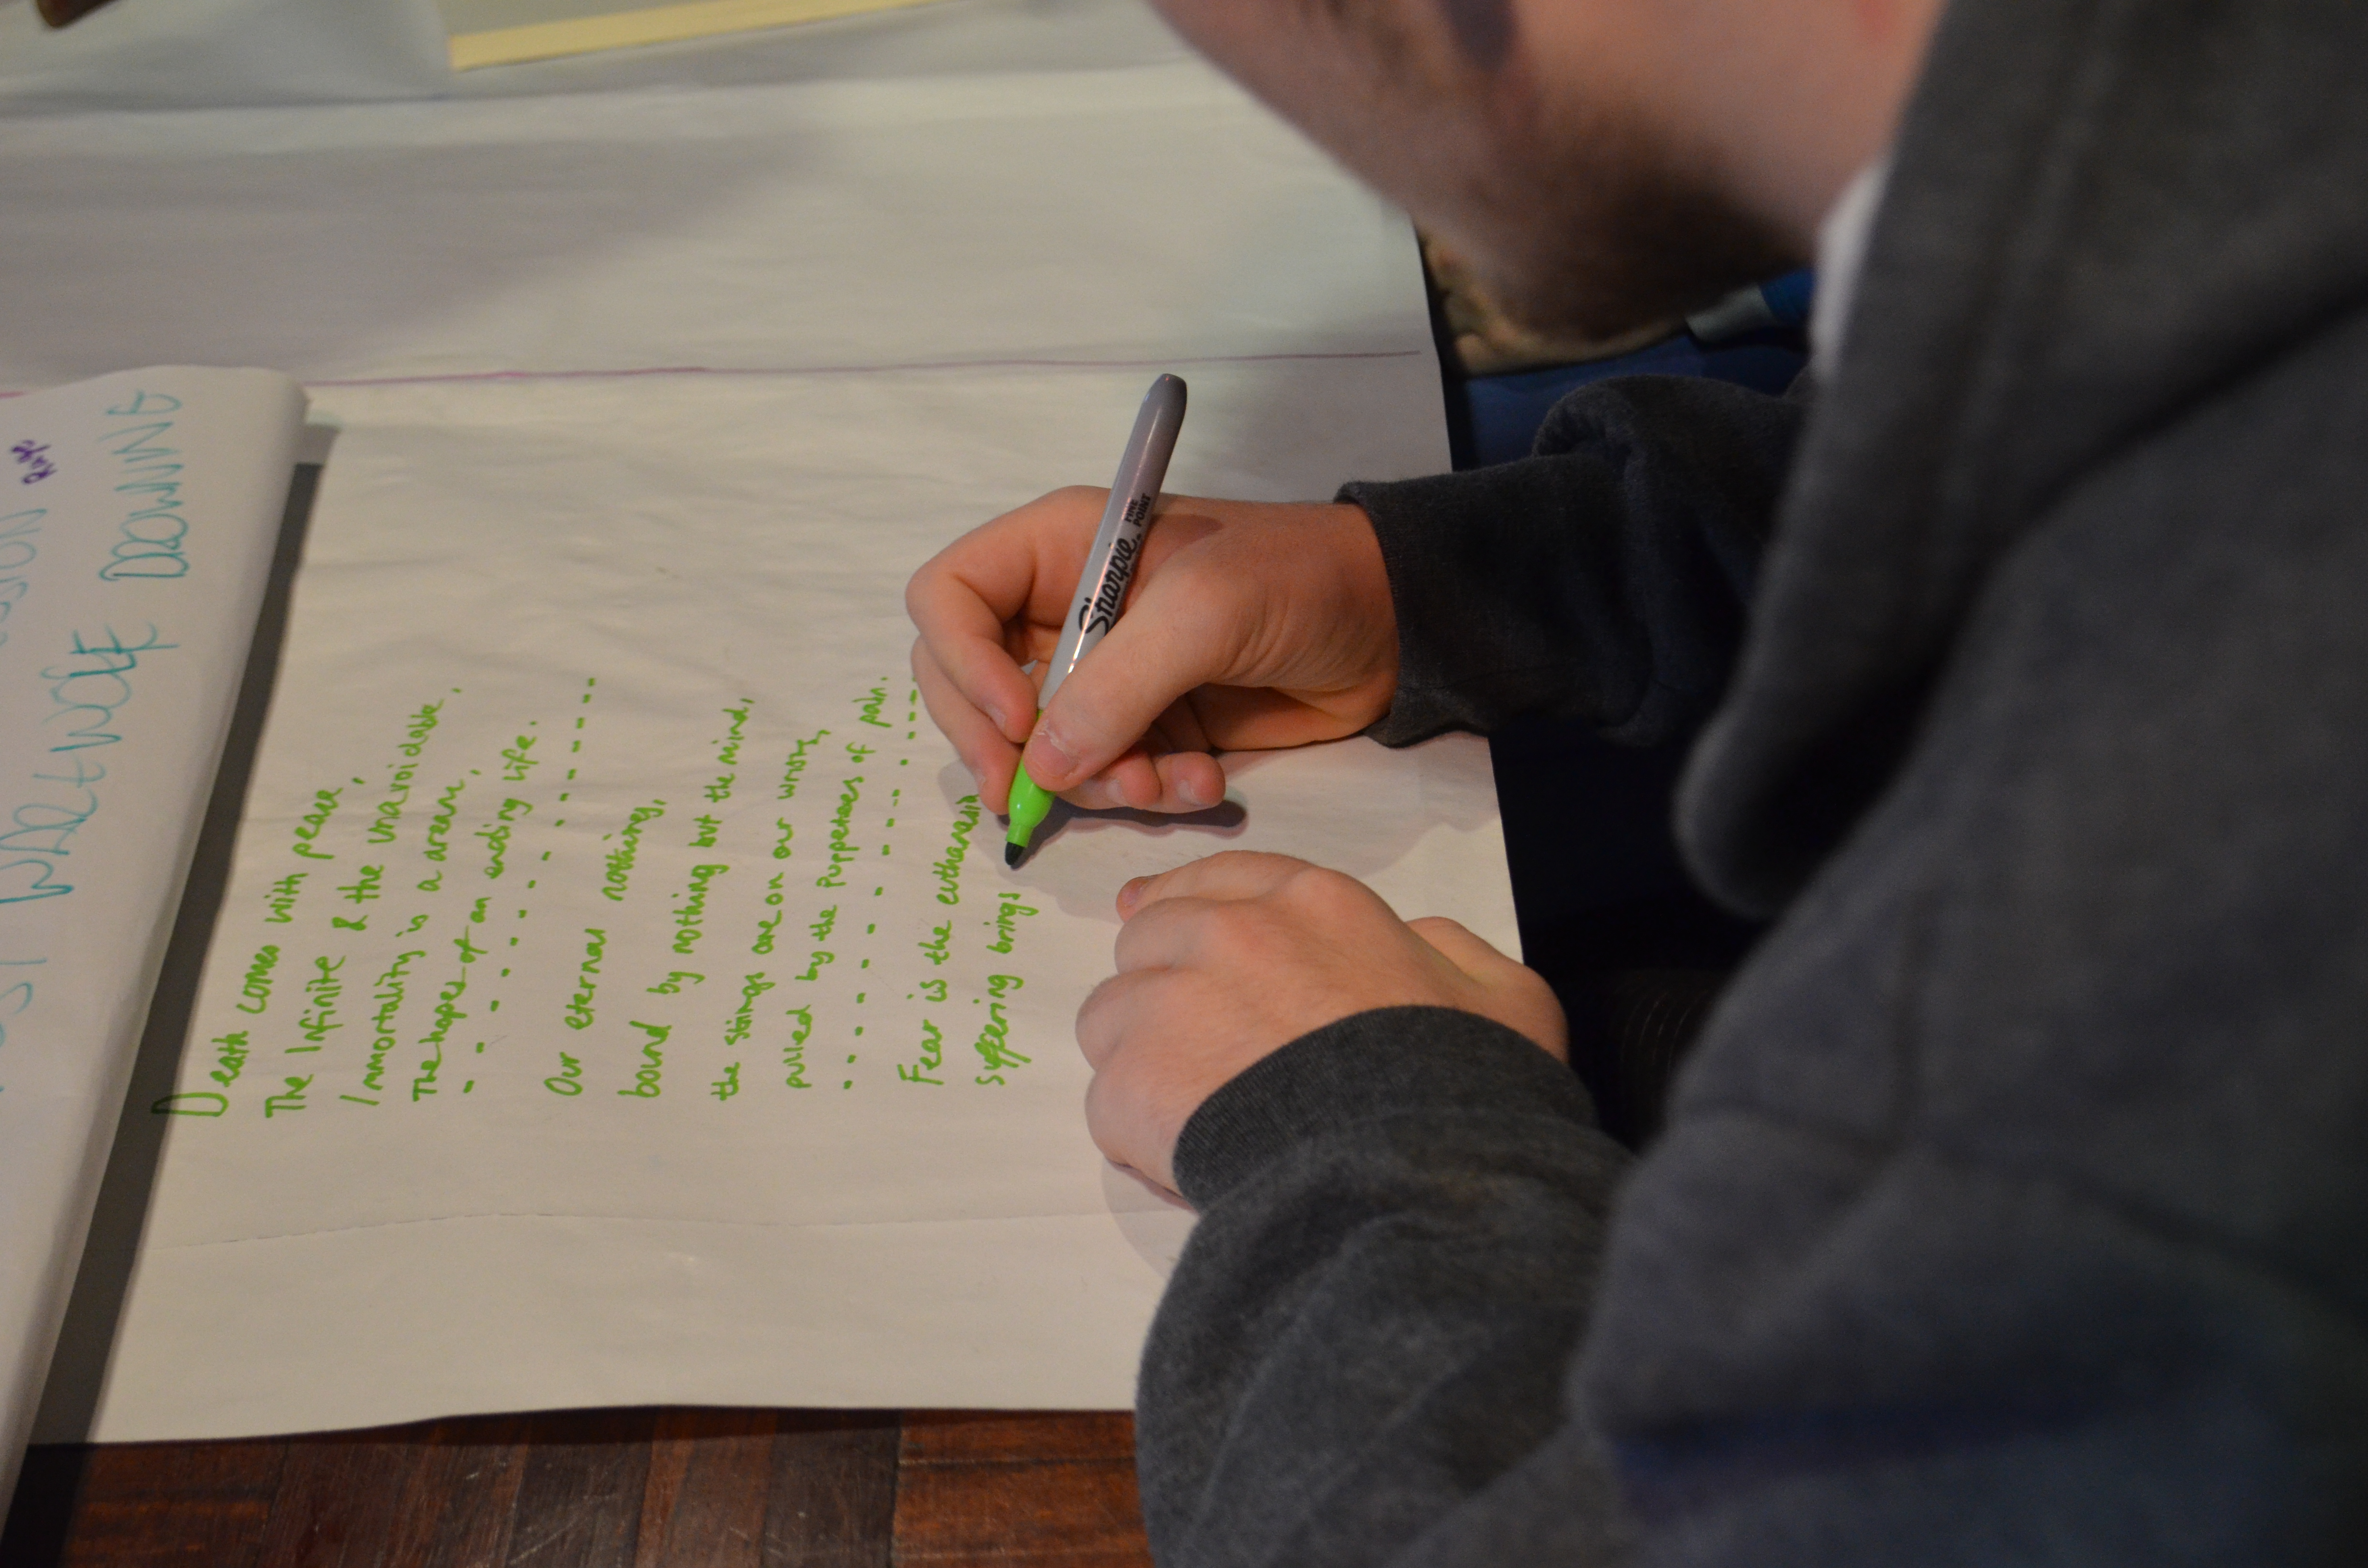 Death comes with peace,
The Infinite & the unavoidable,
Immortality is a dream,
The hopes of an ending life.
Our eternal nothing,
bound by nothing but the mind,
the strings are on our wrong,
pulled by the Puppeteers of pain.
Fear is the euthanasia
suffering brings
Sharpie
FINE
POINT
WOLF DOWNE